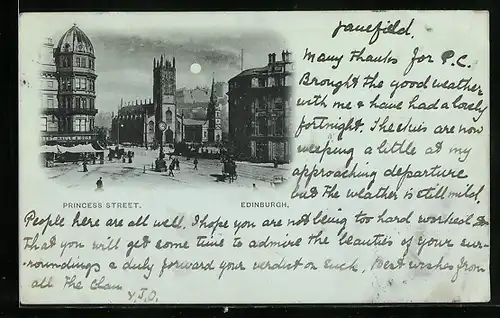 Janefield.
Many thanks for P.C.
Brought the good weather
with me & have had a lovely
fortnight. The skies are now
weeping a little at my
approaching departure
but the weather is still mild.
PRINCESS STREET.
EDINBURGH.
People here are all well. I hope you are not being too hard worked &
that you will get some time to admire the beauties of your sur-
-roundings & duly forward your verdict on such. Best wishes from
all The Clan